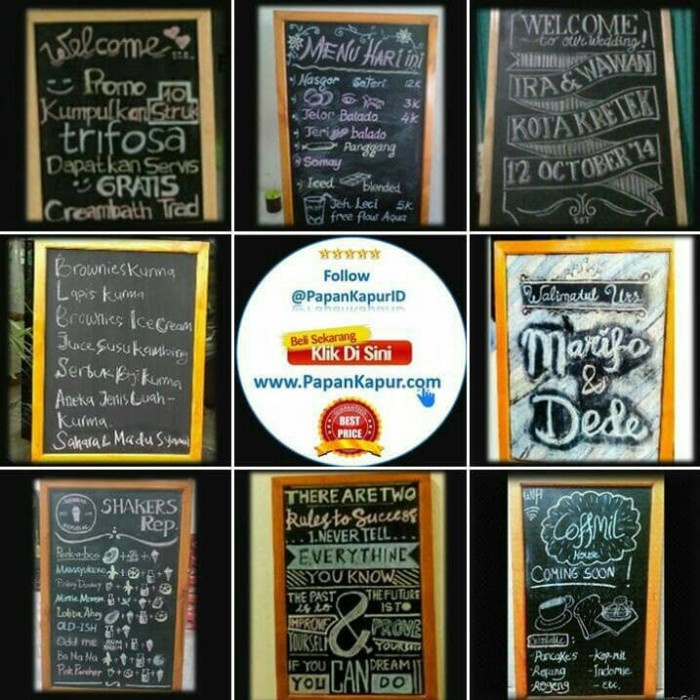 Welcome
Promo
Kumpulkan 10 Struk
trifosa
Dapatkan Servis
GRATIS
Creambath Trad
MENU Hari ini
Nasgor Seteri 2K
3K
Telor Balado 4K
Teri balado
Panggang
Somay
Iced blended
Teh Leci 5K
free flow Aqua
WELCOME
to our wedding!
IRA & WAWAN
KOTA KRETEK
12 OCTOBER '14
Brownies Kurma
Lapis Kurma
Brownies Ice Cream
Juice Susu Kambing
Serbuk Biji Kurma
Aneka Jenis Buah-
Kurma
Sahara & Madu
Follow
@PapanKapurID
Beli Sekarang
Klik Di Sini
www.PapanKapur.com
GUARANTEED
BEST
PRICE
Walimatul Urs
Marifa
&
Dede
SHAKERS
Rep.
Peek a boo
Pinky Donkey
Lolita Ahoy
OLD-ISH
Odd me
Ba Na Na
Pink Panther
THERE ARE TWO
Rules to Success
...1. NEVER TELL...
EVERYTHING
YOU KNOW
THE PAST is to IMPROVE YOURSELF
&
THE FUTURE IS TO PROVE YOURSELF
IF YOU CAN DREAM
YOU CAN DO IT
WIFI
CoffMil
House
COMING SOON!
Available:
- Pancakes - kopmil
- Repang - Indomie
- Rogeng - etc.